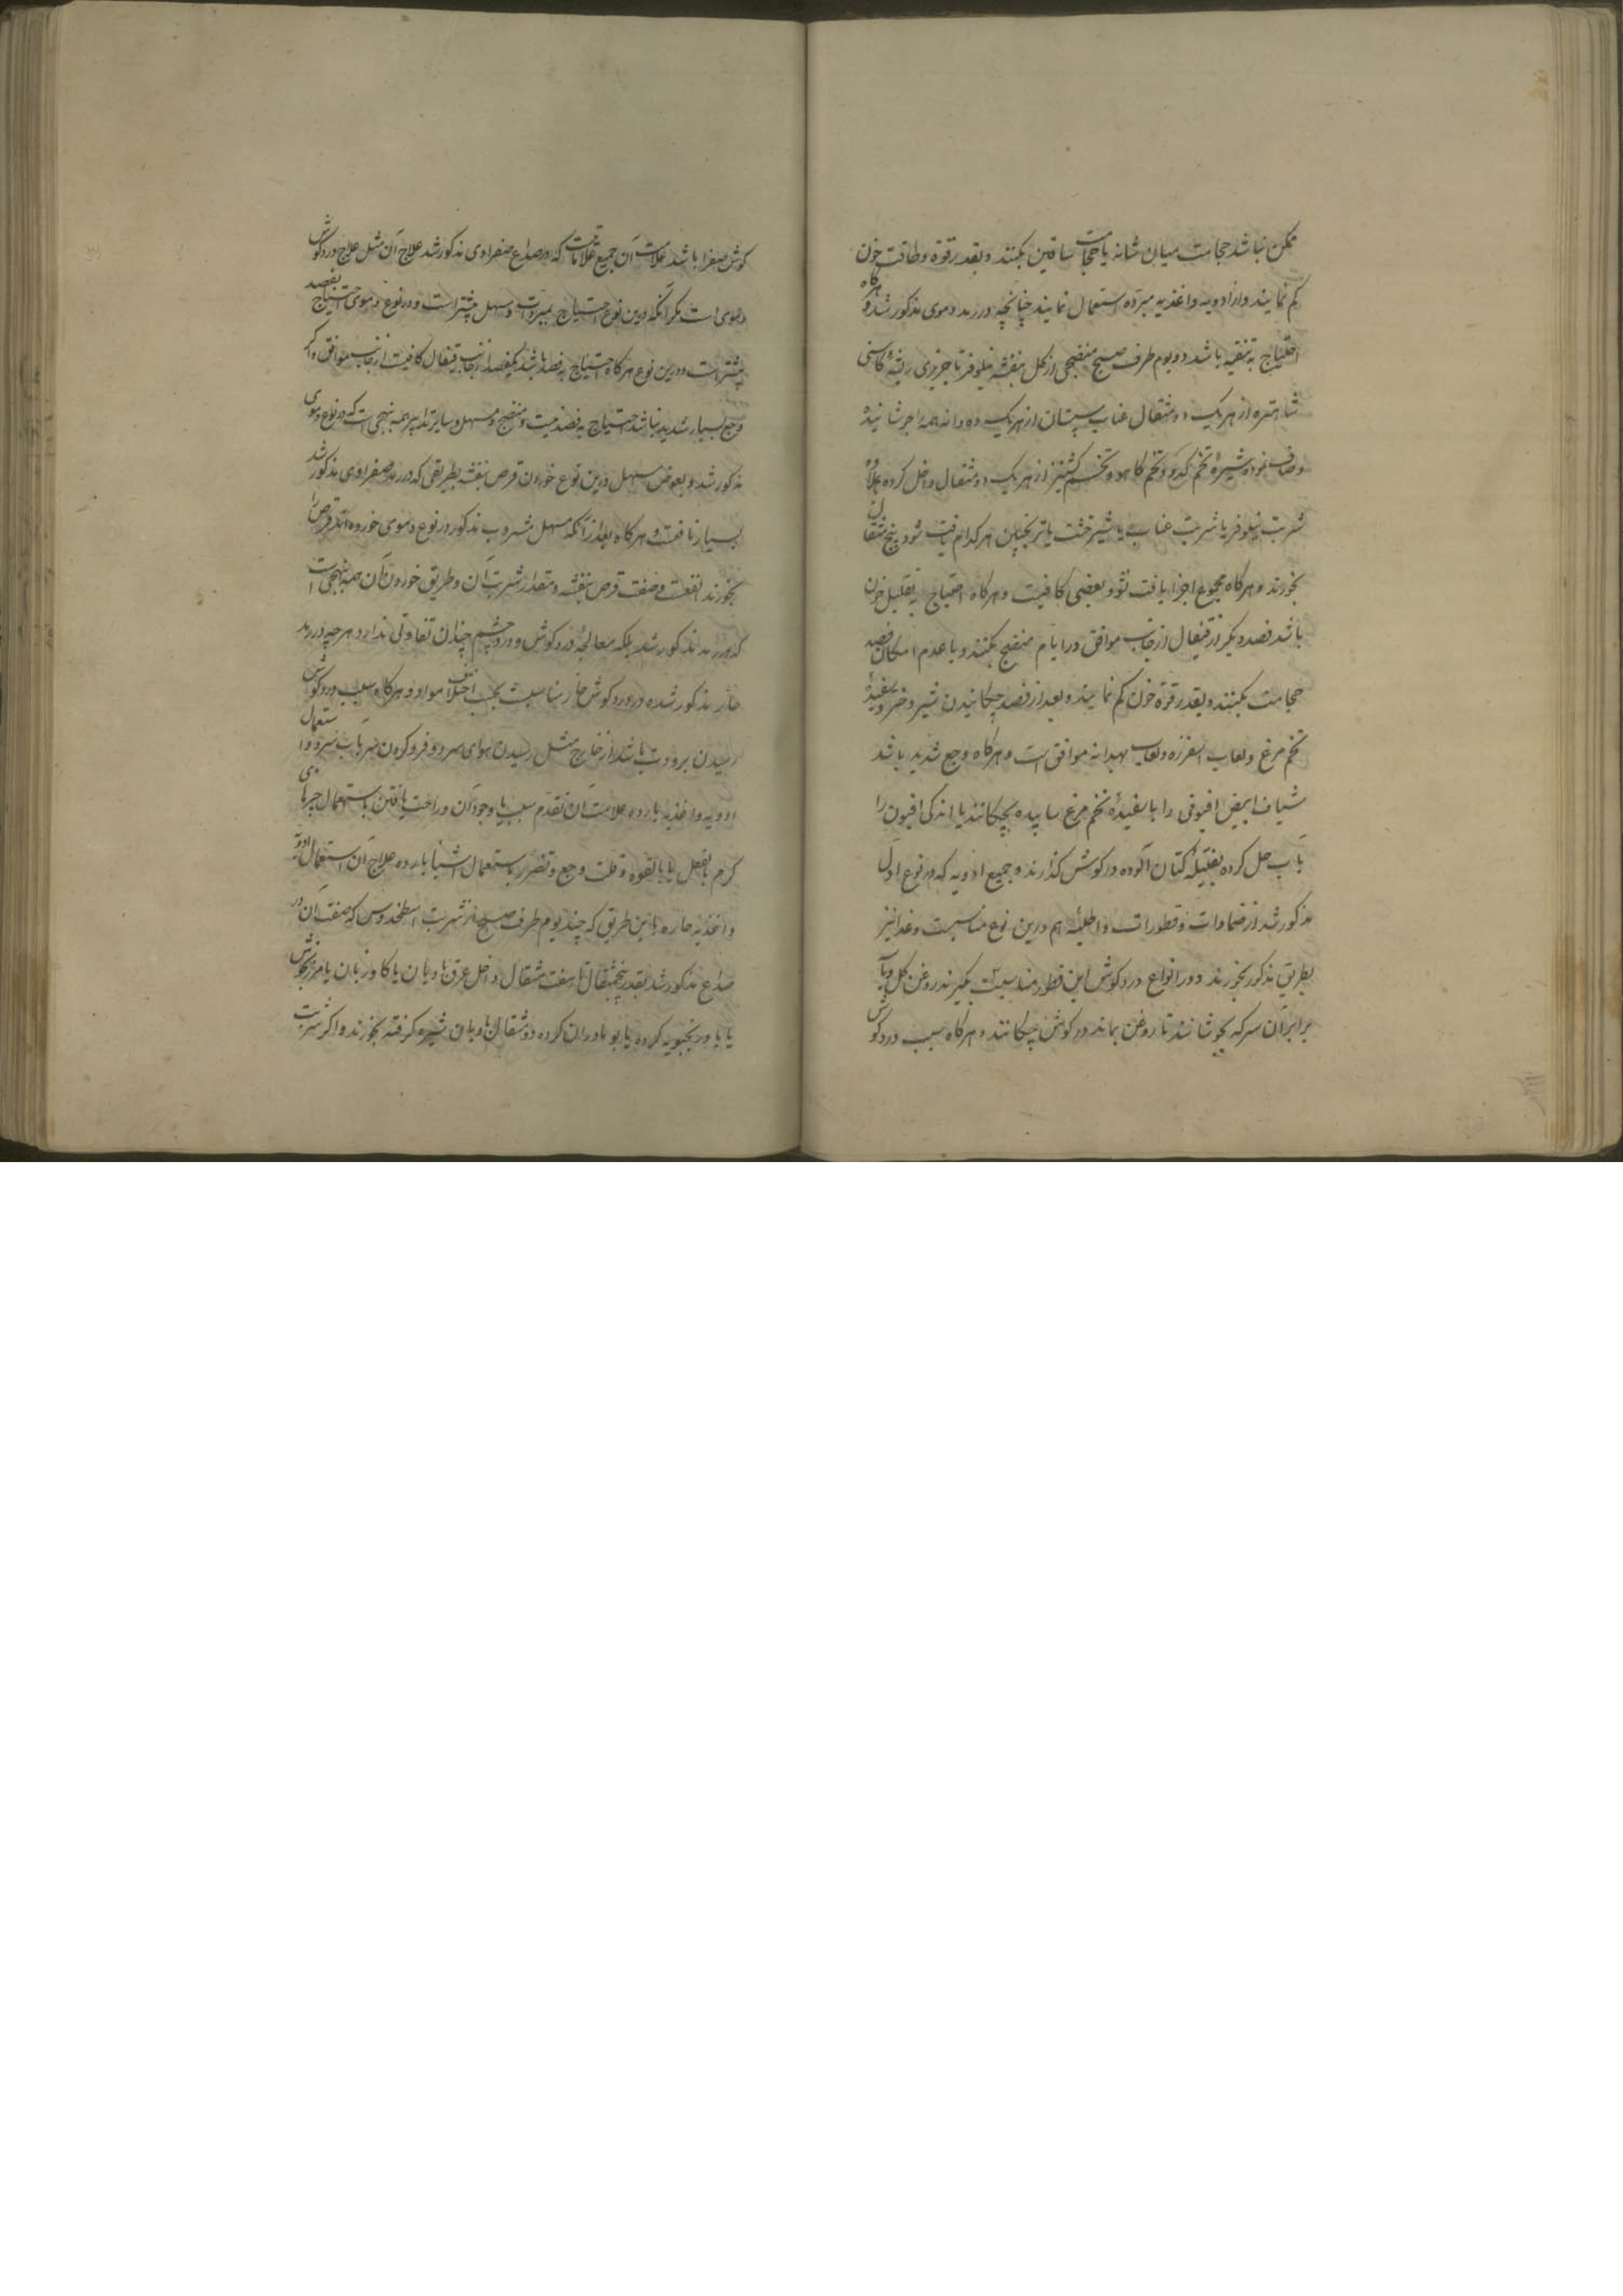 ممکن نباشد حجامت میان شانه یا حجامت ساقین بکنند و بقدر قوة و طاقت خون
کم نمایند و از ادویه و اغذیه مبرده استعمال نمایند چنانچه در رمد دموی مذکور شد و هرگاه
احتیاج به تنقیه باشد دو یوم طرف صبح منضجی از گل بنفشه نیلوفر تاجریزی ریشهٔ کاسنی
شاهتره از هریک دو مثقال عناب سپستان از هریک ده دانه همه را جوشانیده
و صاف نموده شیرهٔ تخم کدو و تخم کاهو و تخم گشنیز از هریک دو مثقال داخل کرده بعلاوه
شربت نیلوفر یا شربت عناب یا شیرخشت یا ترنجبین هرکدام یافت شود پنج مثقال
بخورند و هرگاه مجموع اجزا یافت نشود بعضی کافیست و هرگاه احتیاج به تقلیل خون
باشد فصد دیگر از قیفال از جانب موافق در ایام منضج بکنند و با عدم امکان فصد
حجامت بکنند و بقدر قوة خون کم نمایند و بعد از فصد چکانیدن شیر دختر و سفیدهٔ
تخم مرغ و لعاب اسفرزه و لعاب بهدانه موافق است و هرگاه وجع شدید باشد
شیاف ابیض افیونی را با سفیدهٔ تخم مرغ سائیده بچکانند یا اندکی افیون را
بآب حل کرده بفتیلهٔ کتان آلوده در گوش گذارند و جمیع ادویه که در نوع اول
مذکور شد از ضمادات و قطورات و اطلیه هم درین نوع مناسبست و غذا نیز
بطریق مذکور بخورند و در انواع درد گوش این قطور مناسبست بگیرند روغن گل و با
برابر آن سرکه بجوشانند تا روغن بماند در گوش چکانند و هرگاه سبب درد گوش
گوش صفرا باشد علامت آن جمیع علاماتست که در صداع صفراوی مذکور شد علاج آن مثل علاج درد گوش
دموی است مگر آنکه درین نوع احتیاج بمبردات و مسهل بیشتر است و در نوع دموی احتیاج بفصد
بیشتر است و درین نوع هرگاه احتیاج به فصد باشد یکفصد از جانب قیفال کافیست از جانب موافق و اگر
وجع بسیار شدید نباشد احتیاج به فصد نیست و منضج و مسهل و سایر تدابیر همه بنهجی است که در نوع دموی
مذکور شد و بعوض مسهل درین نوع خوردن قرص بنفشه بطریقی که در رمد صفراوی مذکور شد
بسیار نافعست و هرگاه بعد از آنکه مسهل مشروب مذکور در نوع دموی خورده اند قرص را
بخورند انفعست و صفت قرص بنفشه و مقدار شربت آن و طریق خوردن آن همه بنهجی است
که در رمد مذکور شد بلکه معالجهٔ درد گوش و درد چشم چندان تفاوتی ندارد هرچه در رمد
حار مذکور شده در درد گوش حار مناسبست بحسب اختلاف مواد و هرگاه سبب درد گوش
رسیدن برودت باشد از خارج مثل رسیدن هوای سرد و فرو کردن سر بآب سرد و استعمال
ادویه و اغذیه بارده علامت آن تقدم سبب یا وجود آن و راحت یافتن باستعمال چیزهای
گرم بالفعل یا بالقوه و قلت وجع و تضرر باستعمال اشیا بارده علاج آن استعمال ادویه
و اغذیه حاره باین طریق که چند یوم طرف صبح از شربت اسطخدوس که صفت آن در
صداع مذکور شد بقدر پنجمثقال تا هفت مثقال داخل عرق بادیان یا گاوزبان یا مرزنجوش
یا بادرنجبویه کرده یا بومادران کرده دو مثقال بادیان شیره گرفته بخورند و اگر شربت